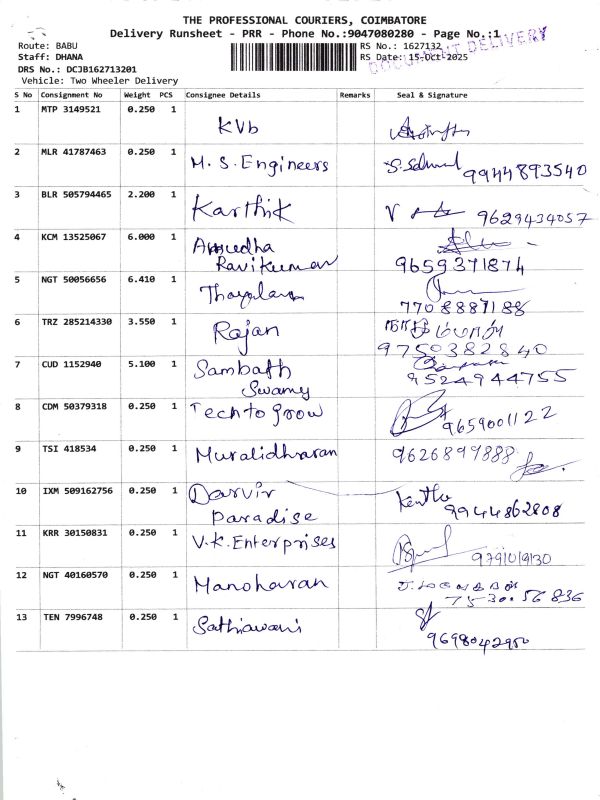 THE PROFESSIONAL COURIERS, COIMBATORE
Delivery Runsheet - PRR - Phone No.:9047080280 - Page No.:1
Route: BABU
Staff: DHANA
DRS No.: DCJB162713201
Vehicle: Two Wheeler Delivery
RS No.: 1627132
RS Date: 15-Oct-2025
DOCUMENT DELIVERY
S No Consignment No Weight PCS Consignee Details Remarks Seal & Signature
1 MTP 3149521 0.250 1 KVb
2 MLR 41787463 0.250 1 M. S. Engineers 9944893540
3 BLR 505794465 2.200 1 Karthik 9629434057
4 KCM 13525067 6.000 1 Amudha
Ravikumar 9659371874
5 NGT 50056656 6.410 1 7708887188
6 TRZ 285214330 3.550 1 Rajan
9750382840
7 CUD 1152940 5.100 1 Sambath
Swamy 9524944755
8 CDM 50379318 0.250 1 Techtogrow 9659001122
9 TSI 418534 0.250 1 Muralidharan 9626897888
10 IXM 509162756 0.250 1 Darvir
Paradise 9944862808
11 KRR 30150831 0.250 1 V.K. Enterprises
12 NGT 40160570 0.250 1 Manoharan
75-30.56 836
13 TEN 7996748 0.250 1 9698042950